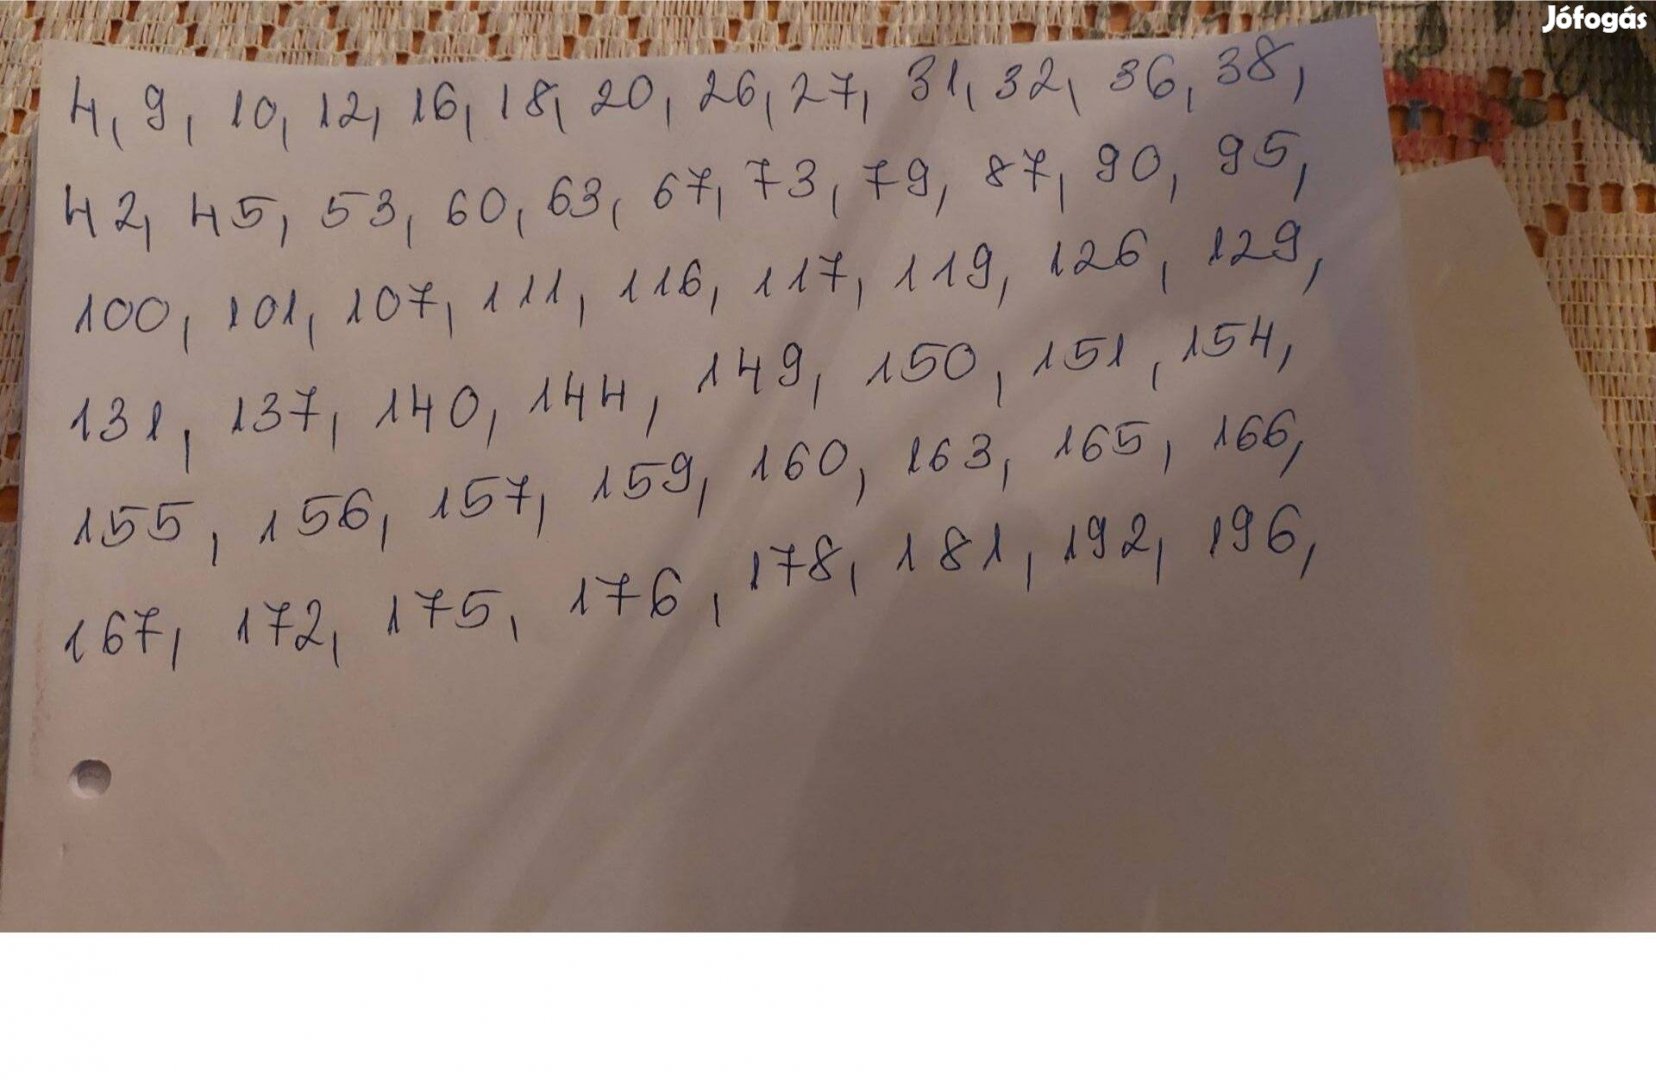 Jófogás
4, 9, 10, 12, 16, 18, 20, 26, 27, 31, 32, 36, 38,
42, 45, 53, 60, 63, 67, 73, 79, 87, 90, 95,
100, 101, 107, 111, 116, 117, 119, 126, 129,
131, 137, 140, 144, 149, 150, 151, 154,
155, 156, 157, 159, 160, 163, 165, 166,
167, 172, 175, 176, 178, 181, 192, 196,